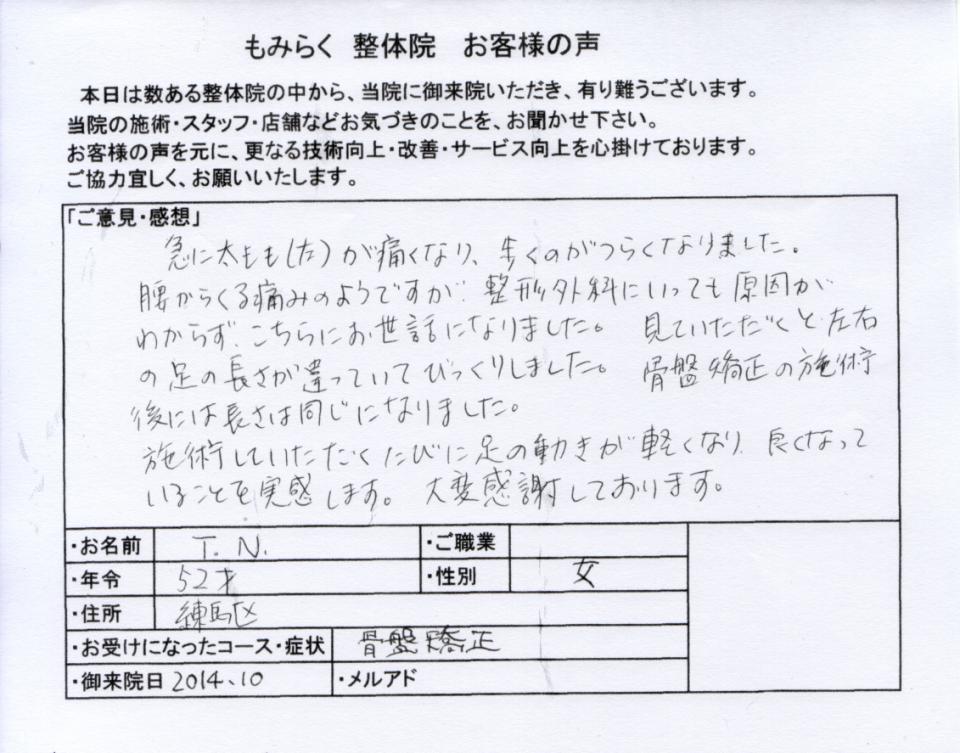 もみらく 整体院 お客様の声
本日は数ある整体院の中から、当院に御来院いただき、有り難うございます。
当院の施術・スタッフ・店舗などお気づきのことを、お聞かせ下さい。
お客様の声を元に、更なる技術向上・改善・サービス向上を心掛けております。
ご協力宜しく、お願いいたします。
「ご意見・感想」
急に太もも(左)が痛くなり、歩くのがつらくなりました。
腰からくる痛みのようですが、整形外科にいっても原因が
わからず、こちらにお世話になりました。 見ていただくと、左右
の足の長さが違っていてびっくりしました。 骨盤矯正の施術
後には長さは同じになりました。
施術していただくたびに足の動きが軽くなり、良くなって
いることを実感します。 大変感謝しております。
・お名前 T. N. ・ご職業
・年令 52才 ・性別 女
・住所 練馬区
・お受けになったコース・症状 骨盤矯正
・御来院日 2014.10 ・メルアド